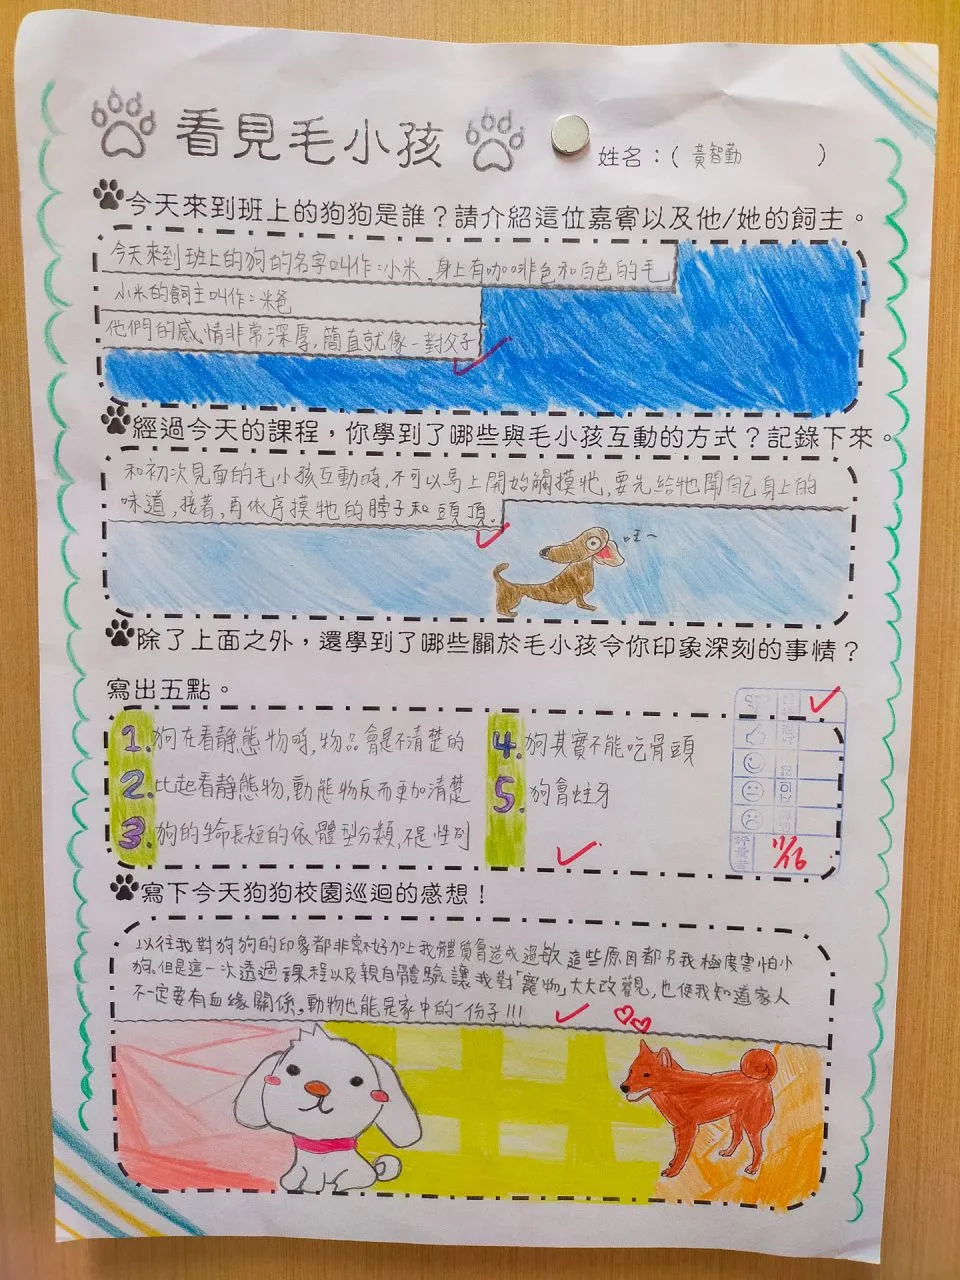 看見毛小孩
姓名：( 黃智勤 )
今天來到班上的狗狗是誰？請介紹這位嘉賓以及他/她的飼主。
今天來到班上的狗的名字叫作：小米，身上有咖啡色和白色的毛
小米的飼主叫作：米色
他們的感情非常深厚，簡直就像一對父子
經過今天的課程，你學到了哪些與毛小孩互動的方式？記錄下來。
和初次見面的毛小孩互動時，不可以馬上開始觸摸牠，要先給牠聞自己身上的
味道，接著，再依序摸牠的脖子和頭頂。
哇~
除了上面之外，還學到了哪些關於毛小孩令你印象深刻的事情？
寫出五點。
1. 狗在看靜態物時，物品會是不清楚的
2. 比起看靜態物，動態物反而更加清楚
3. 狗的生命長短的依體型分類，不是性別
4. 狗其實不能吃骨頭
5. 狗會蛀牙
11/16
寫下今天狗狗校園巡迴的感想！
以往我對狗狗的印象都非常不好加上我體質會造成過敏 這些原因都另我極度害怕小
狗。但是這一次透過課程以及親自體驗讓我對「寵物」大大改觀，也使我知道家人
不一定要有血緣關係，動物也能是家中的一份子!!!